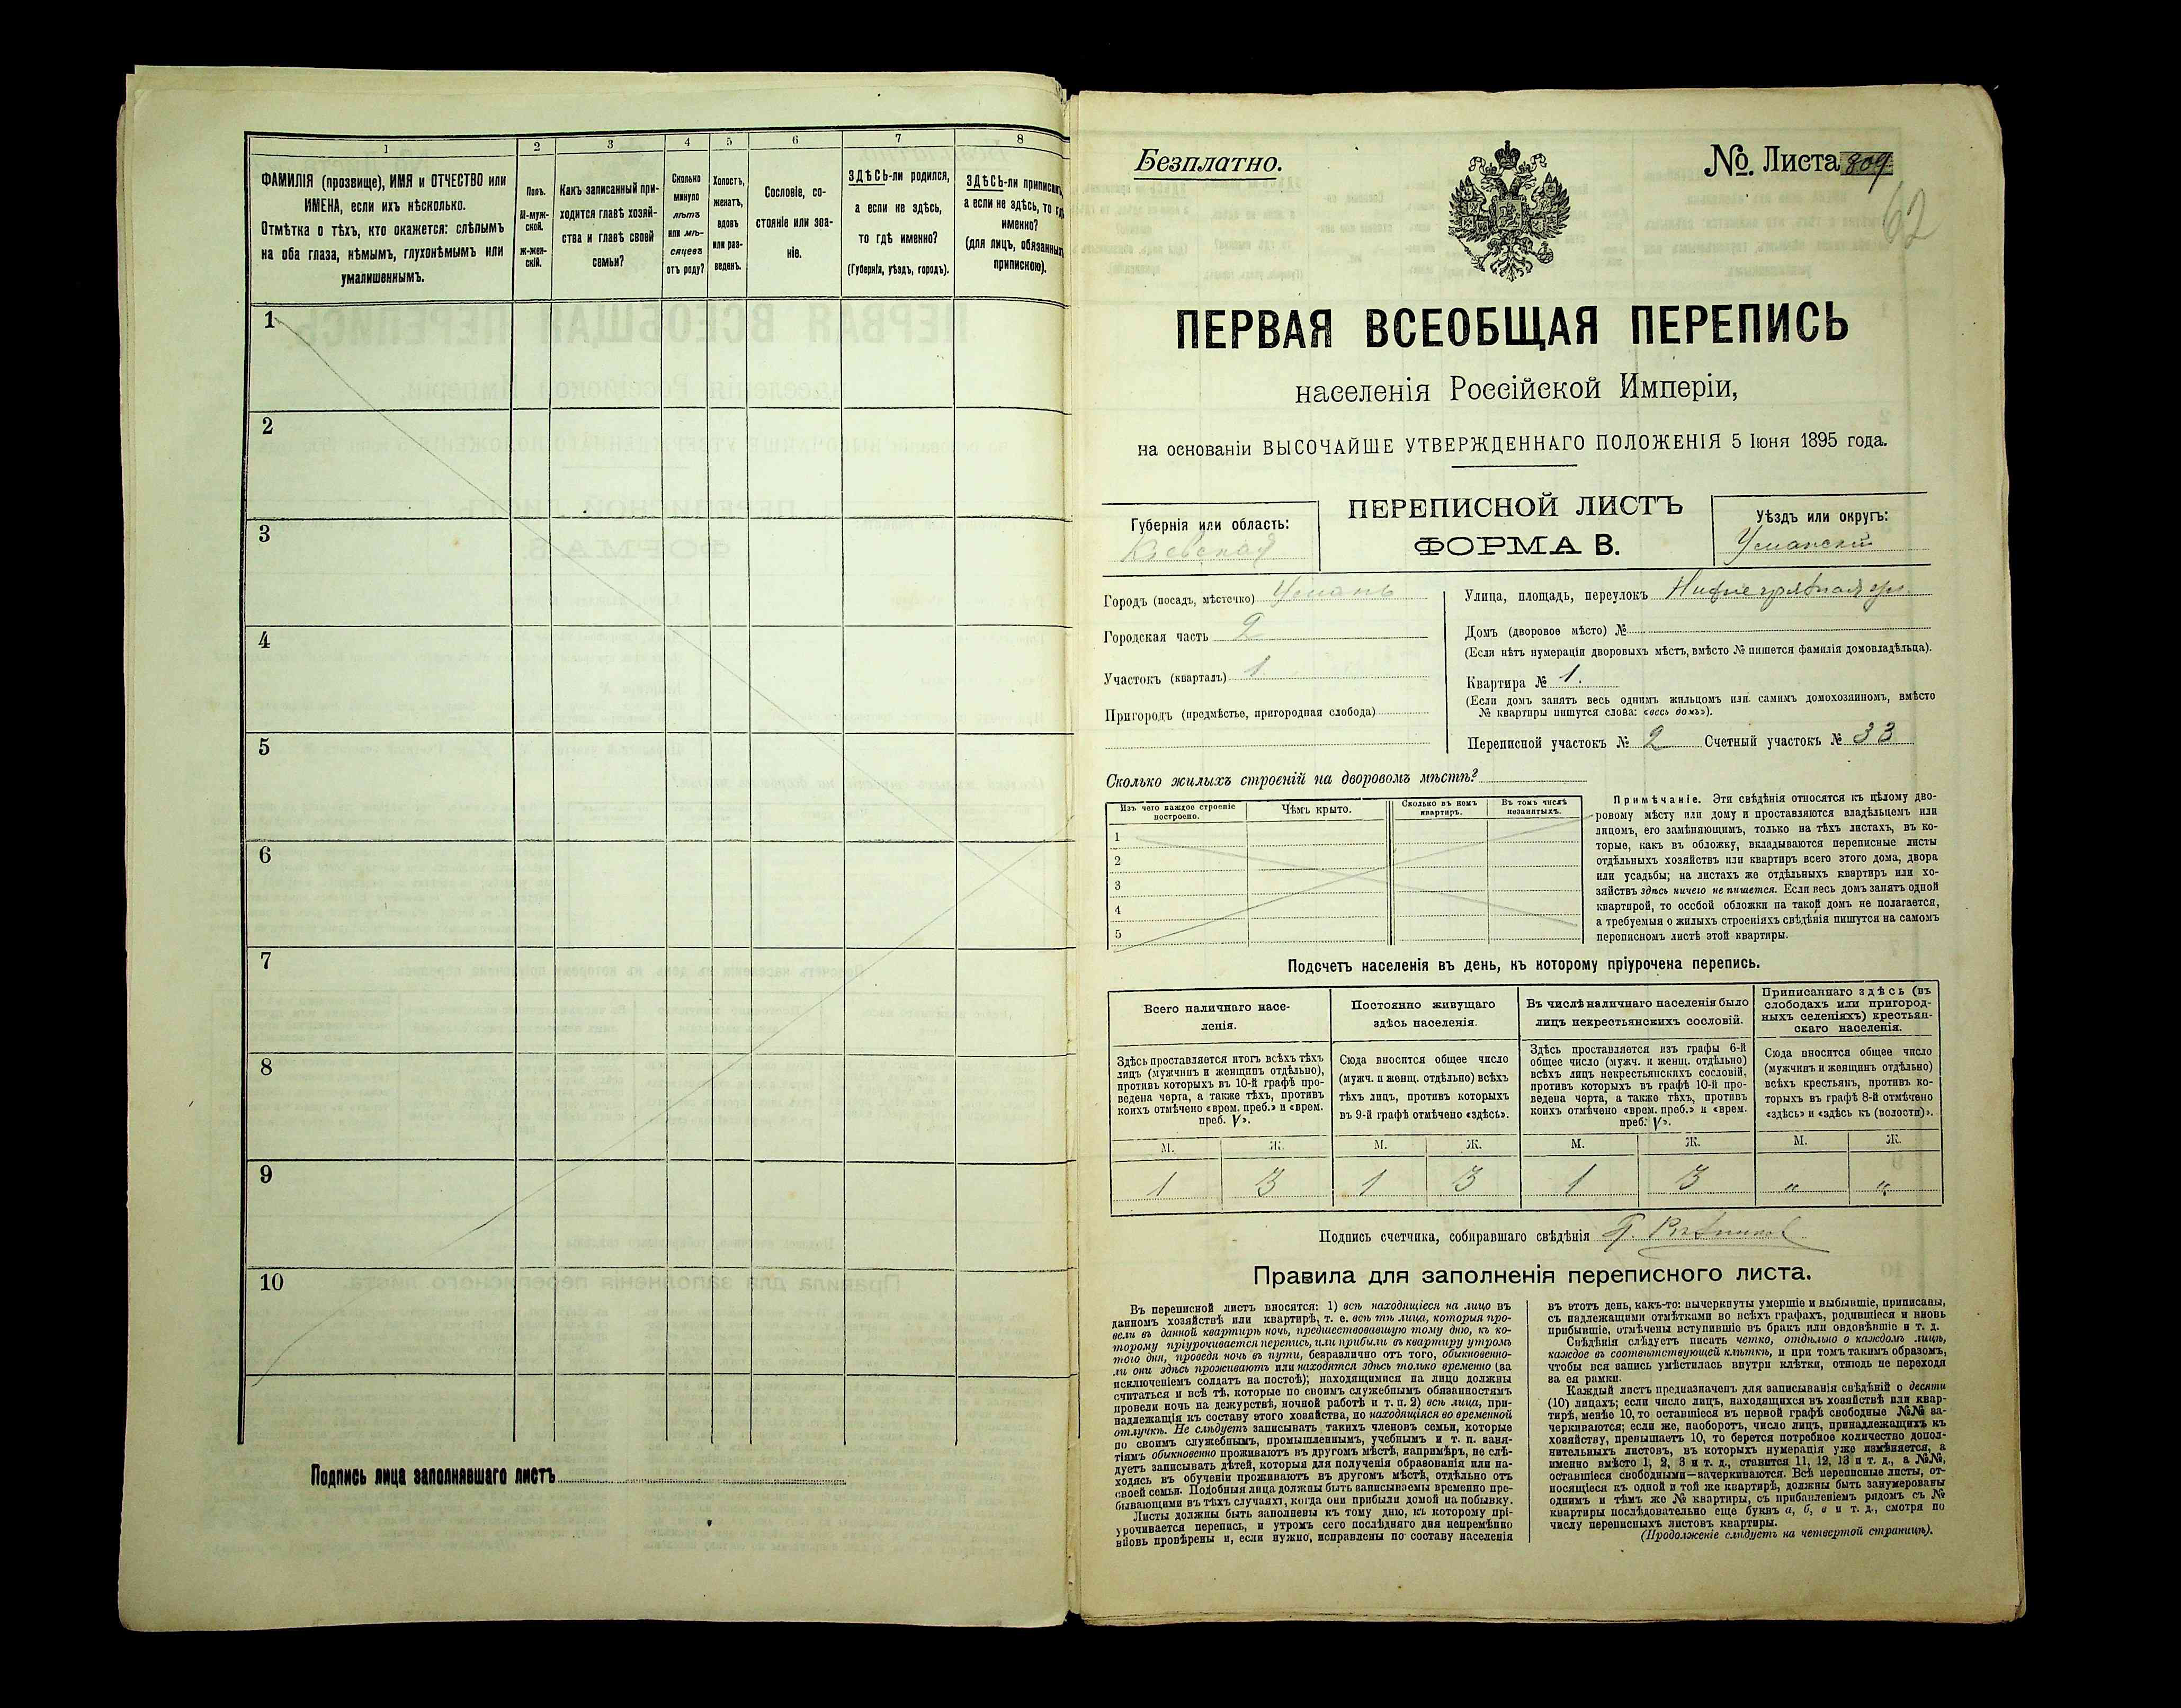 1
2
3
4
5
6
7
8
ФАМИЛІЯ (прозвище), ИМЯ и ОТЧЕСТВО или
ИМЕНА, если ихъ нѣсколько.
Отмѣтка о тѣхъ, кто окажется: слѣпымъ
на оба глаза, нѣмымъ, глухонѣмымъ или
умалишеннымъ.
Полъ.
М-муж-
ской.
Ж-жен-
скій.
Какъ записанный при-
ходится главѣ хозяй-
ства и главѣ своей
семьи?
Сколько
минуло
лѣтъ
или мѣ-
сяцевъ
отъ роду?
Холостъ,
женатъ,
вдовъ
или раз-
веденъ.
Сословіе, со-
стояніе или зва-
ніе.
ЗДѢСЬ-ли родился,
а если не здѣсь,
то гдѣ именно?
(Губернія, уѣздъ, городъ).
ЗДѢСЬ-ли приписанъ
а если не здѣсь, то гдѣ
именно?
(для лицъ, обязанныхъ
припискою).
1
2
3
4
5
6
7
8
9
10
Подпись лица заполнявшаго листъ
Безплатно.
№. Листа 809
62
ПЕРВАЯ ВСЕОБЩАЯ ПЕРЕПИСЬ
населенія Россійской Имперіи,
на основаніи ВЫСОЧАЙШЕ УТВЕРЖДЕННАГО ПОЛОЖЕНІЯ 5 Іюня 1895 года.
Губернія или область:
Кіевская
ПЕРЕПИСНОЙ ЛИСТЪ
ФОРМА В.
Уѣздъ или округъ:
Уманскій
Городъ (посадъ, мѣстечко) Умань
Городская часть 2
Участокъ (кварталъ) 1
Пригородъ (предмѣстье, пригородная слобода)
Улица, площадь, переулокъ
Домъ (дворовое мѣсто) №
(Если нѣтъ нумераціи дворовыхъ мѣстъ, вмѣсто № пишется фамилія домовладѣльца).
Квартира № 1.
(Если домъ занятъ весь однимъ жильцомъ или самимъ домохозяиномъ, вмѣсто
№ квартиры пишутся слова: «весь домъ»).
Переписной участокъ № 2 Счетный участокъ № 33
Сколько жилыхъ строеній на дворовомъ мѣстѣ?
Изъ чего каждое строеніе
построено.
Чѣмъ крыто.
Сколько въ немъ
квартиръ.
Въ томъ числѣ
незанятыхъ.
1
2
3
4
5
Примѣчаніе. Эти свѣдѣнія относятся къ цѣлому дво-
ровому мѣсту или дому и проставляются владѣльцемъ или
лицомъ, его замѣняющимъ, только на тѣхъ листахъ, въ ко-
торые, какъ въ обложку, вкладываются переписные листы
отдѣльныхъ хозяйствъ или квартиръ всего этого дома, двора
или усадьбы; на листахъ же отдѣльныхъ квартиръ или хо-
зяйствъ здѣсь ничего не пишется. Если весь домъ занятъ одной
квартирой, то особой обложки на такой домъ не полагается,
а требуемыя о жилыхъ строеніяхъ свѣдѣнія пишутся на самомъ
переписномъ листѣ этой квартиры.
Подсчетъ населенія въ день, къ которому пріурочена перепись.
Всего наличнаго насе-
ленія.
Постоянно живущаго
здѣсь населенія.
Въ числѣ наличнаго населенія было
лицъ некрестьянскихъ сословій.
Приписаннаго здѣсь (въ
слободахъ или пригород-
ныхъ селеніяхъ) крестьян-
скаго населенія.
Здѣсь проставляется итогъ всѣхъ тѣхъ
лицъ (мужчинъ и женщинъ отдѣльно),
противъ которыхъ въ 10-й графѣ про-
ведена черта, а также тѣхъ, противъ
коихъ отмѣчено «врем. преб.» и «врем.
преб. V».
Сюда вносится общее число
(мужч. и женщ. отдѣльно) всѣхъ
тѣхъ лицъ, противъ которыхъ
въ 9-й графѣ отмѣчено «здѣсь».
Здѣсь проставляется изъ графы 6-й
общее число (мужч. и женщ. отдѣльно)
всѣхъ лицъ некрестьянскихъ сословій,
противъ которыхъ въ графѣ 10-й про-
ведена черта, а также тѣхъ, противъ
коихъ отмѣчено «врем. преб.» и «врем.
преб. V».
Сюда вносится общее число
(мужчинъ и женщинъ отдѣльно)
всѣхъ крестьянъ, противъ ко-
торыхъ въ графѣ 8-й отмѣчено
«здѣсь» и «здѣсь къ (волости)».
М. Ж. М. Ж. М. Ж. М. Ж.
1 3 1 3 1 3 " "
Подпись счетчика, собиравшаго свѣдѣнія
Правила для заполненія переписного листа.
Въ переписной листъ вносятся: 1) всѣ находящіеся на лицо въ
данномъ хозяйствѣ или квартирѣ, т. е. всѣ тѣ лица, которыя про-
вели въ данной квартирѣ ночь, предшествовавшую тому дню, къ ко-
торому пріурочивается перепись, или прибыли въ квартиру утромъ
того дня, проведя ночь въ пути, безразлично отъ того, обыкновенно-
ли они здѣсь проживаютъ или находятся здѣсь только временно (за
исключеніемъ солдатъ на постоѣ); находящимися на лицо должны
считаться и всѣ тѣ, которые по своимъ служебнымъ обязанностямъ
провели ночь на дежурствѣ, ночной работѣ и т. п. 2) всѣ лица, при-
надлежащія къ составу этого хозяйства, но находящіяся во временной
отлучкѣ. Не слѣдуетъ записывать такихъ членовъ семьи, которые
по своимъ служебнымъ, промышленнымъ, учебнымъ и т. п. заня-
тіямъ обыкновенно проживаютъ въ другомъ мѣстѣ, напримѣръ, не слѣ-
дуетъ записывать дѣтей, которыя для полученія образованія или на-
ходясь въ обученіи проживаютъ въ другомъ мѣстѣ, отдѣльно отъ
своей семьи. Подобныя лица должны быть записываемы временно пре-
бывающими въ тѣхъ случаяхъ, когда они прибыли домой на побывку.
Листы должны быть заполнены къ тому дню, къ которому прі-
урочивается перепись, и утромъ сего послѣдняго дня непремѣнно
вновь провѣрены и, если нужно, исправлены по составу населенія
въ этотъ день, какъ-то: вычеркнуты умершіе и выбывшіе, приписаны,
съ надлежащими отмѣтками во всѣхъ графахъ, родившіеся и вновь
прибывшіе, отмѣчены вступившіе въ бракъ или овдовѣвшіе и т. д.
Свѣдѣнія слѣдуетъ писать четко, отдѣльно о каждомъ лицѣ,
каждое въ соотвѣтствующей клѣткѣ, и при томъ такимъ образомъ,
чтобы вся запись умѣстилась внутри клѣтки, отнюдь не переходя
за ея рамки.
Каждый листъ предназначенъ для записыванія свѣдѣній о десяти
(10) лицахъ; если число лицъ, находящихся въ хозяйствѣ или квар-
тирѣ, менѣе 10, то оставшіеся въ первой графѣ свободные №№ за-
черкиваются; если же, наоборотъ, число лицъ, принадлежащихъ къ
хозяйству, превышаетъ 10, то берется потребное количество допол-
нительныхъ листовъ, въ которыхъ нумерація уже измѣняется, а
именно вмѣсто 1, 2, 3 и т. д., ставится 11, 12, 13 и т. д., а №№,
оставшіеся свободными—зачеркиваются. Всѣ переписные листы, от-
носящіеся къ одной и той же квартирѣ, должны быть занумерованы
однимъ и тѣмъ же № квартиры, съ прибавленіемъ рядомъ съ №
квартиры послѣдовательно еще буквъ а, б, в и т. д., смотря по
числу переписныхъ листовъ квартиры.
(Продолженіе слѣдуетъ на четвертой страницѣ).